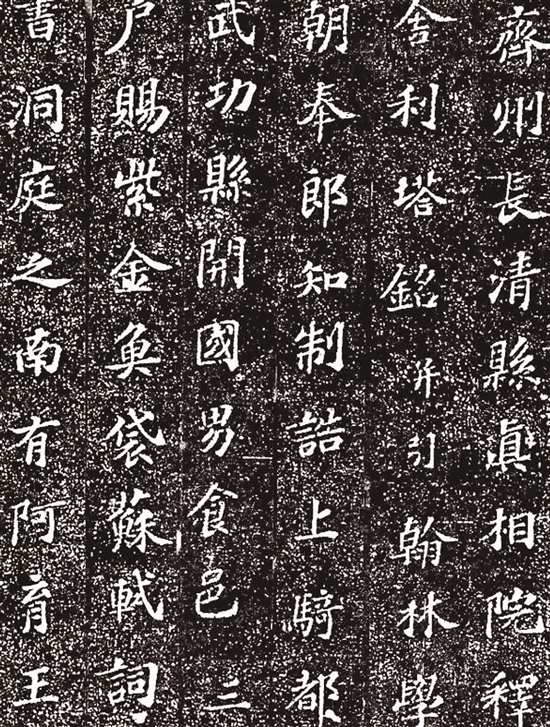 齊州長清縣真相院釋
舍利塔銘并引翰林學
朝奉郎知制誥上騎都
武功縣開國男食邑三
戶賜紫金魚袋蘇軾詞
書洞庭之南有阿育王